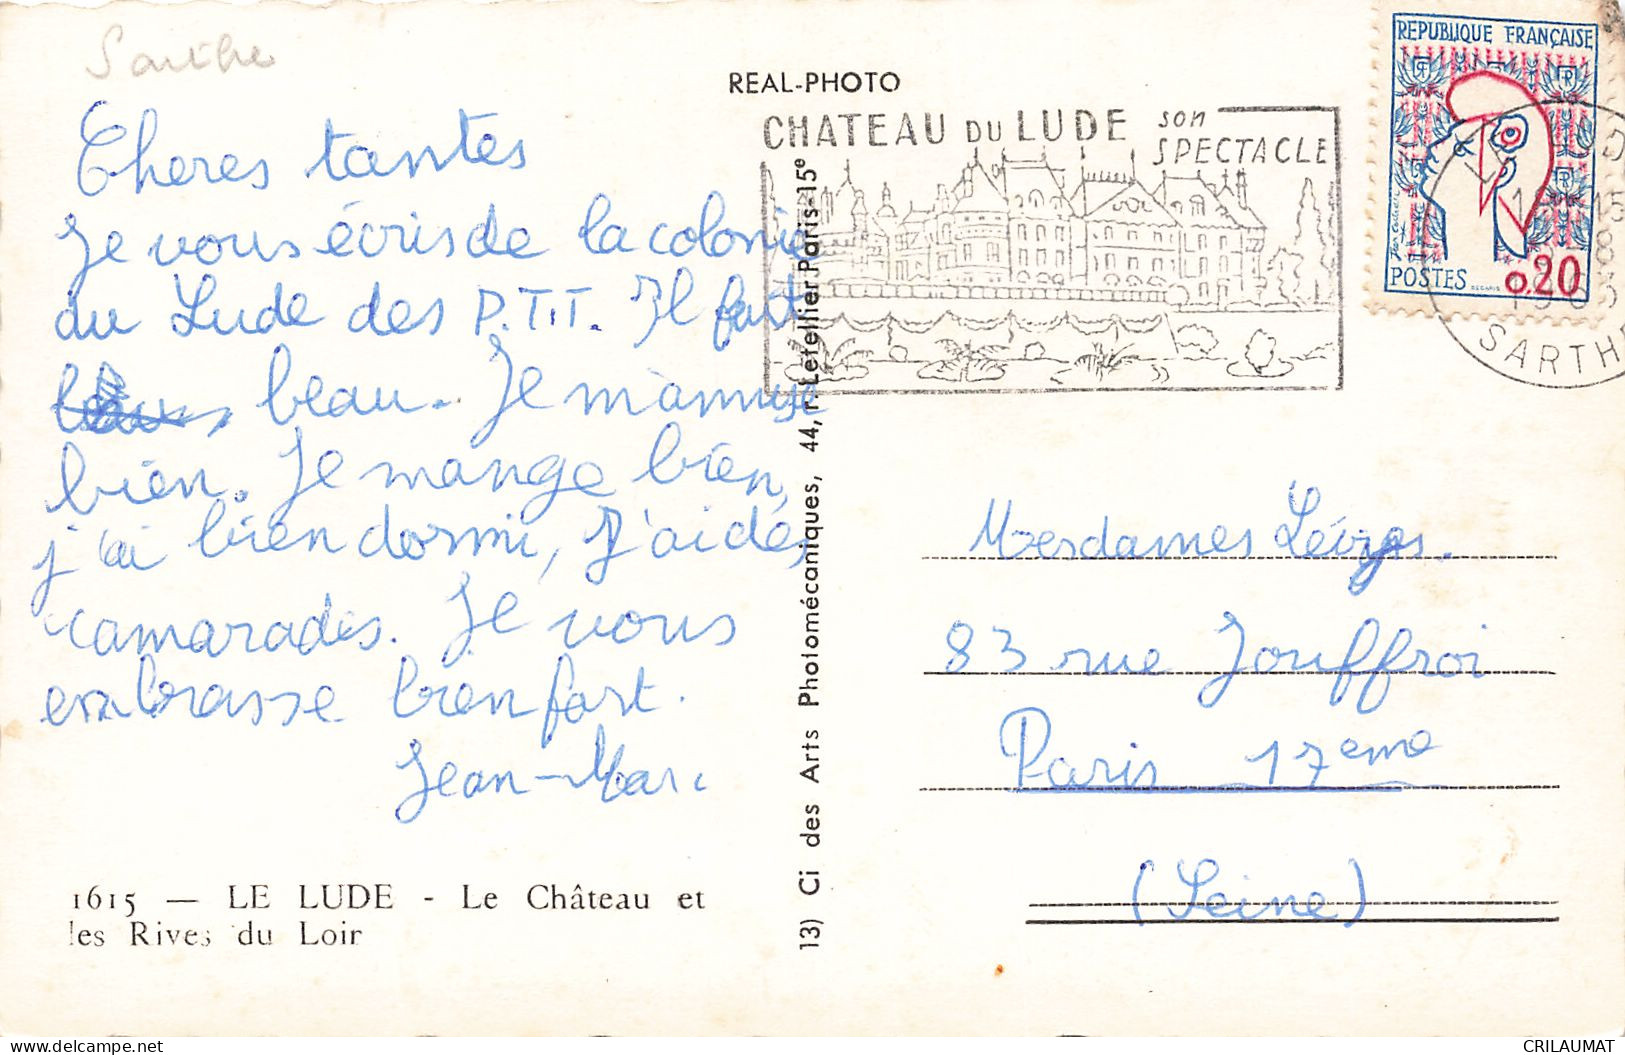 Sarthe
Cheres tantes
Je vous écris de la colonie
du Lude des P.T.T. Il fait
beau. Je m'amuse
bien. Je mange bien,
j'ai bien dormi, J'ai des
camarades. Je vous
embrasse bien fort.
Jean-Marc
1615 — LE LUDE - Le Château et
les Rives du Loir
REAL-PHOTO
13) Ci des Arts Photomécaniques, 44, r. Letellier Paris-15e
CHATEAU DU LUDE son
SPECTACLE
REPUBLIQUE FRANÇAISE
POSTES 0,20
DECARIS
SARTHE
Mesdames
83 rue Jouffroi
Paris 17eme
(Seine)
CRILAUMAT
www.delcampe.net